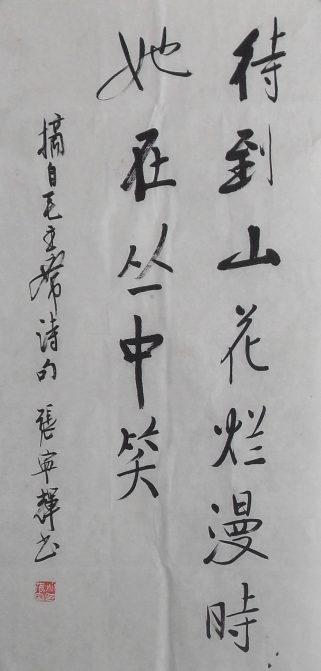 待到山花烂漫時
她在丛中笑
摘自毛主席诗句 張宁輝书